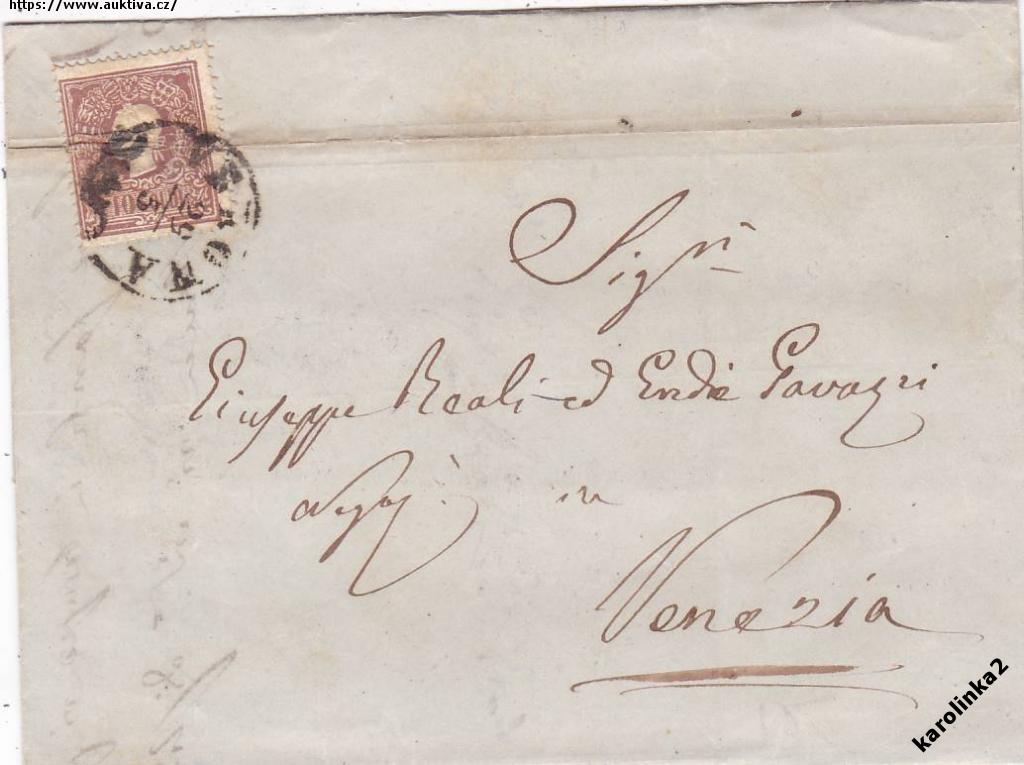 https://www.auktiva.cz/
10
VERONA
Sigri
Giuseppe Reali ed Erede Gavazzi
in
Venezia
karolinka2